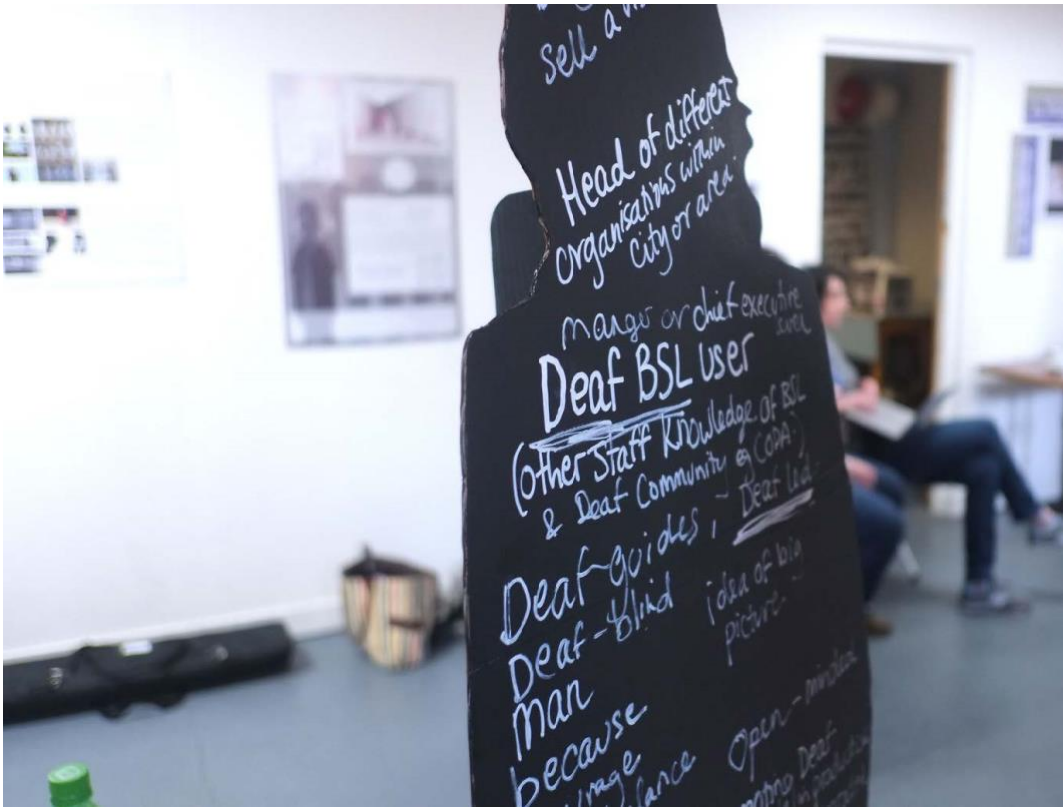 Sell a
Head of different
organisations within
city or area
manger or chief executive
Deaf BSL user
(other staff knowledge of BSL
& Deaf Community eg CODA)
Deaf-guides, Deaf led.
Deaf-blind idea of big
man picture
because
open-minded
Deaf